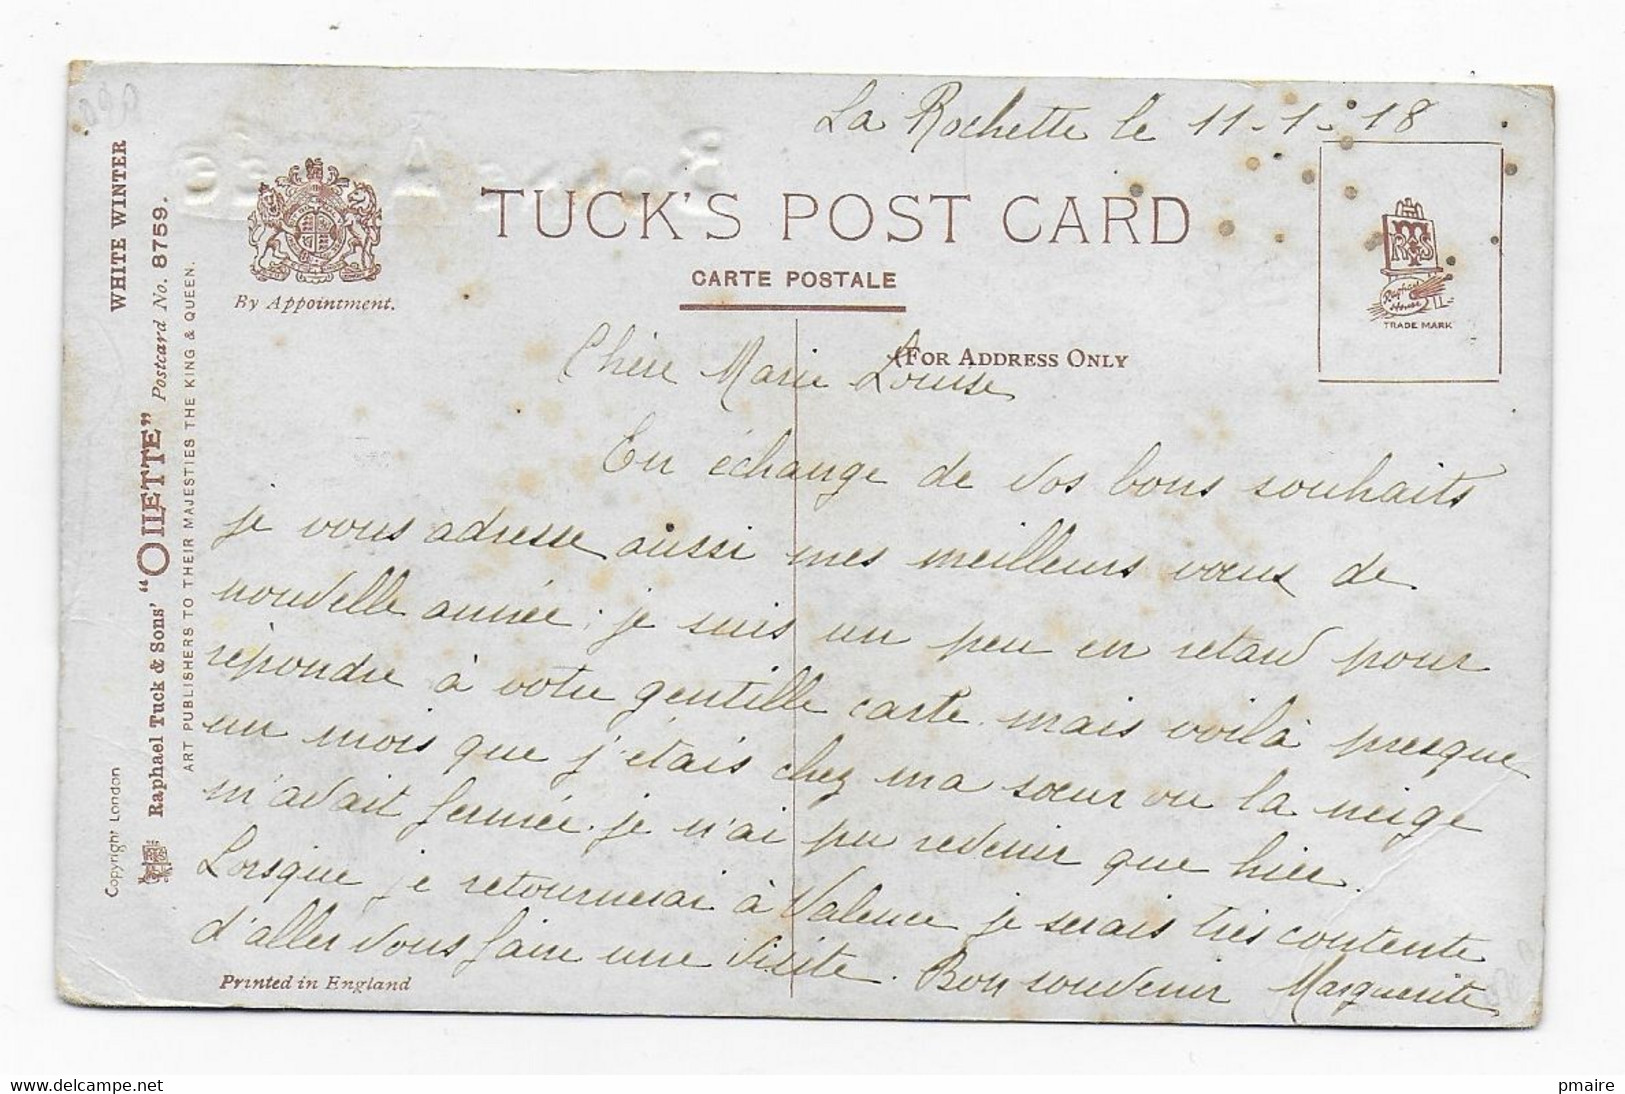 La Rochette le 11-1-18
TUCK'S POST CARD
CARTE POSTALE
By Appointment.
(FOR ADDRESS ONLY
TRADE MARK
Raphael House
WHITE WINTER
Raphael Tuck & Sons' "OILETTE" Postcard No. 8759.
ART PUBLISHERS TO THEIR MAJESTIES THE KING & QUEEN.
Copyright London
Chère Marie Louise
En échange de vos bons souhaits
je vous adresse aussi mes meilleurs vœux de
nouvelle année; je suis un peu en retard pour
répondre à votre gentille carte mais voilà presque
un mois que j'étais chez ma sœur ou la neige
m'avait fermée. je n'ai pu revenir que hier.
Lorsque je retournerai à Valence je serais très contente
d'aller vous faire une visite. Bon souvenir Marguerite
Printed in England
www.delcampe.net
pmaire